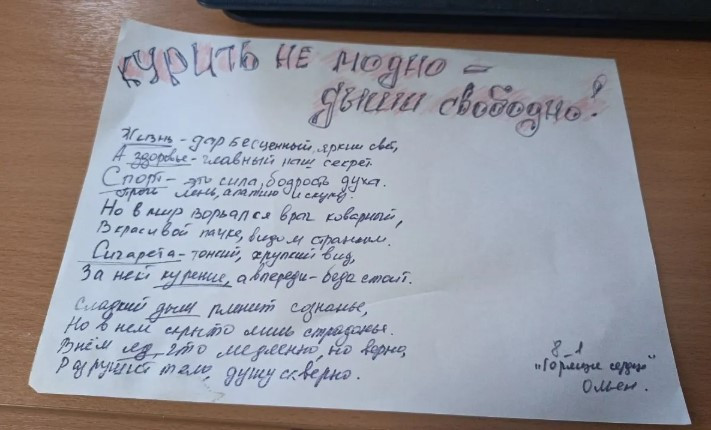 КУРИТЬ НЕ МОДНО –
дыши свободно!
Жизнь – дар бесценный, яркий свет,
А здоровье – главный наш секрет.
Спорт – это сила, бодрость духа.
лень, апатию и скуку.
Но в мир ворвался враг коварный,
В красивой пачке, видом странным.
Сигарета – тонкий, хрупкий вид,
За ней курение, а впереди – беда стоит.
Сладкий дым пленит сознанье,
Но в нем скрыто лишь страданье.
В нём яд, что медленно, но верно,
Разрушит тело, душу скверно.
8-1
"Горящие сердца"